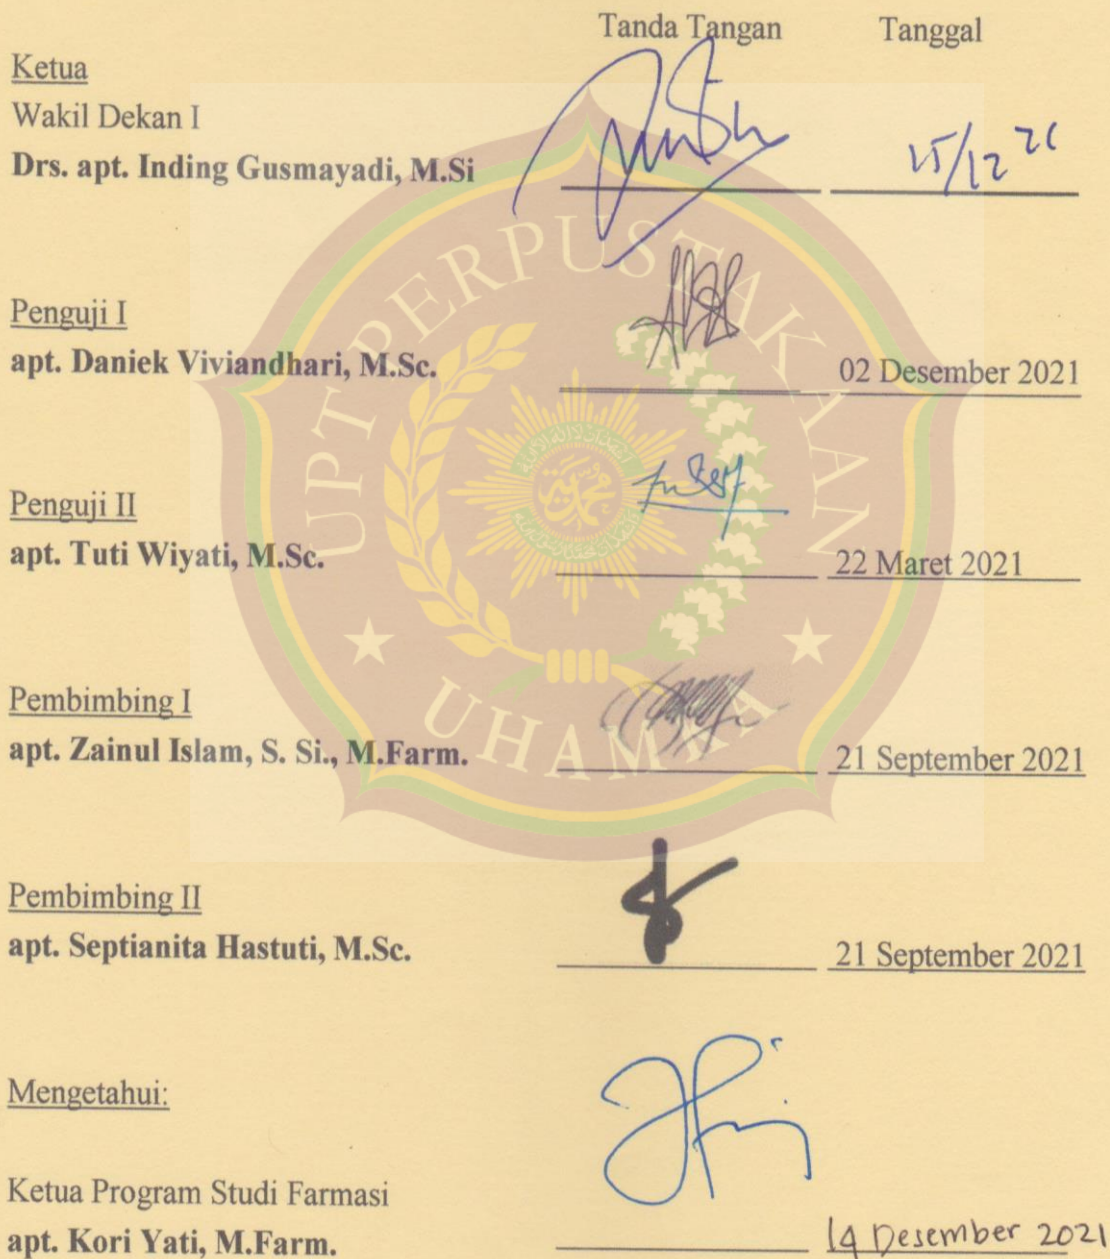 Tanda Tangan Tanggal
Ketua
Wakil Dekan I
Drs. apt. Inding Gusmayadi, M.Si
15/12 21
Penguji I
apt. Daniek Viviandhari, M.Sc.
02 Desember 2021
Penguji II
apt. Tuti Wiyati, M.Sc.
22 Maret 2021
Pembimbing I
apt. Zainul Islam, S. Si., M.Farm.
21 September 2021
Pembimbing II
apt. Septianita Hastuti, M.Sc.
21 September 2021
Mengetahui:
Ketua Program Studi Farmasi
apt. Kori Yati, M.Farm.
14 Desember 2021
UPT PERPUSTAKAAN
UHAMKA